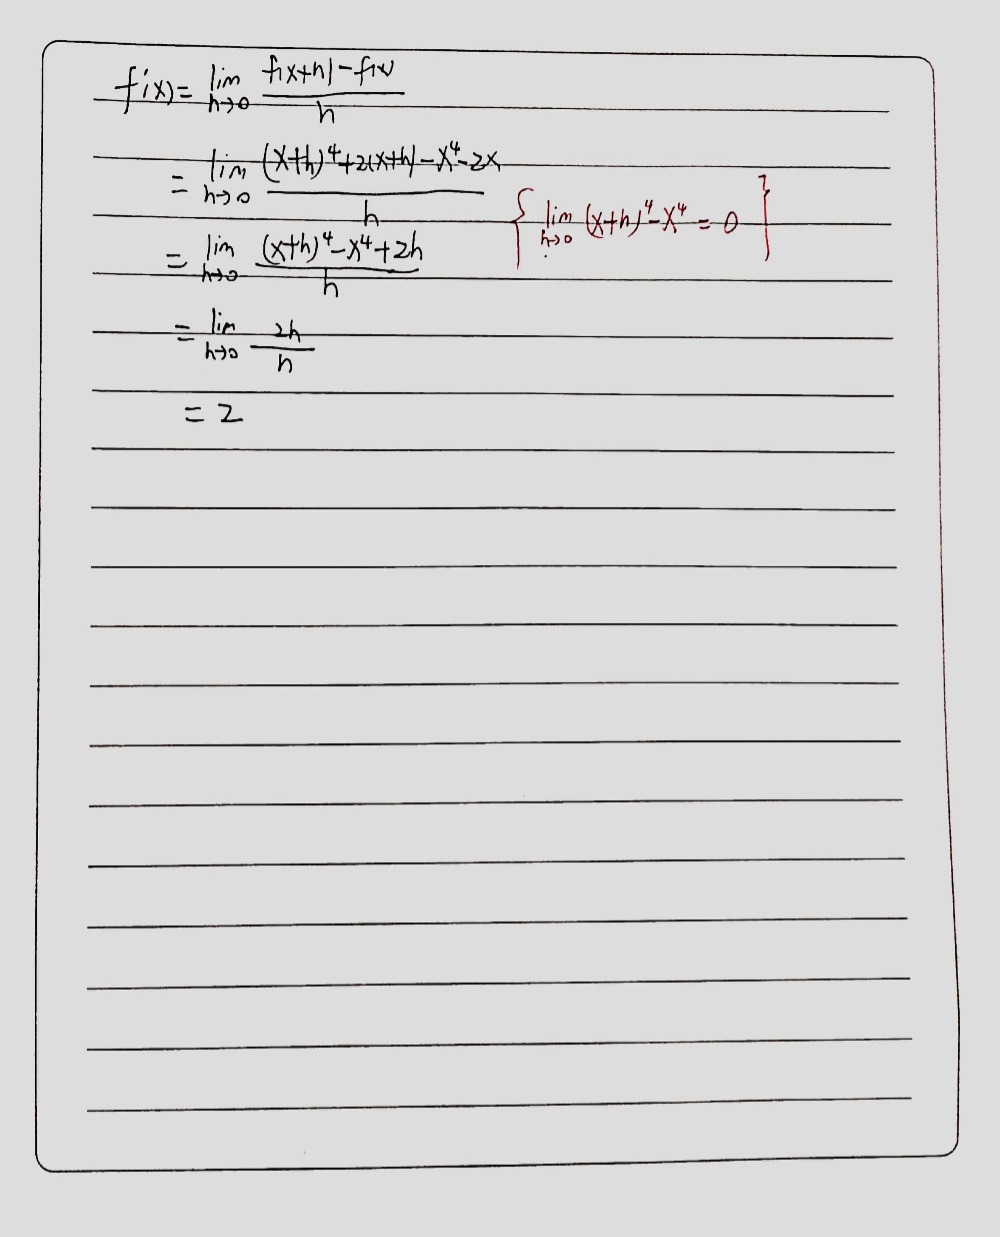 f'(x) = lim h→0 f(x+h)-f(x) / h
= lim h→0 (x+h)⁴+2(x+h)-x⁴-2x / h
{ lim h→0 (x+h)⁴-x⁴ = 0 }
= lim h→0 (x+h)⁴-x⁴+2h / h
= lim h→0 2h / h
= 2